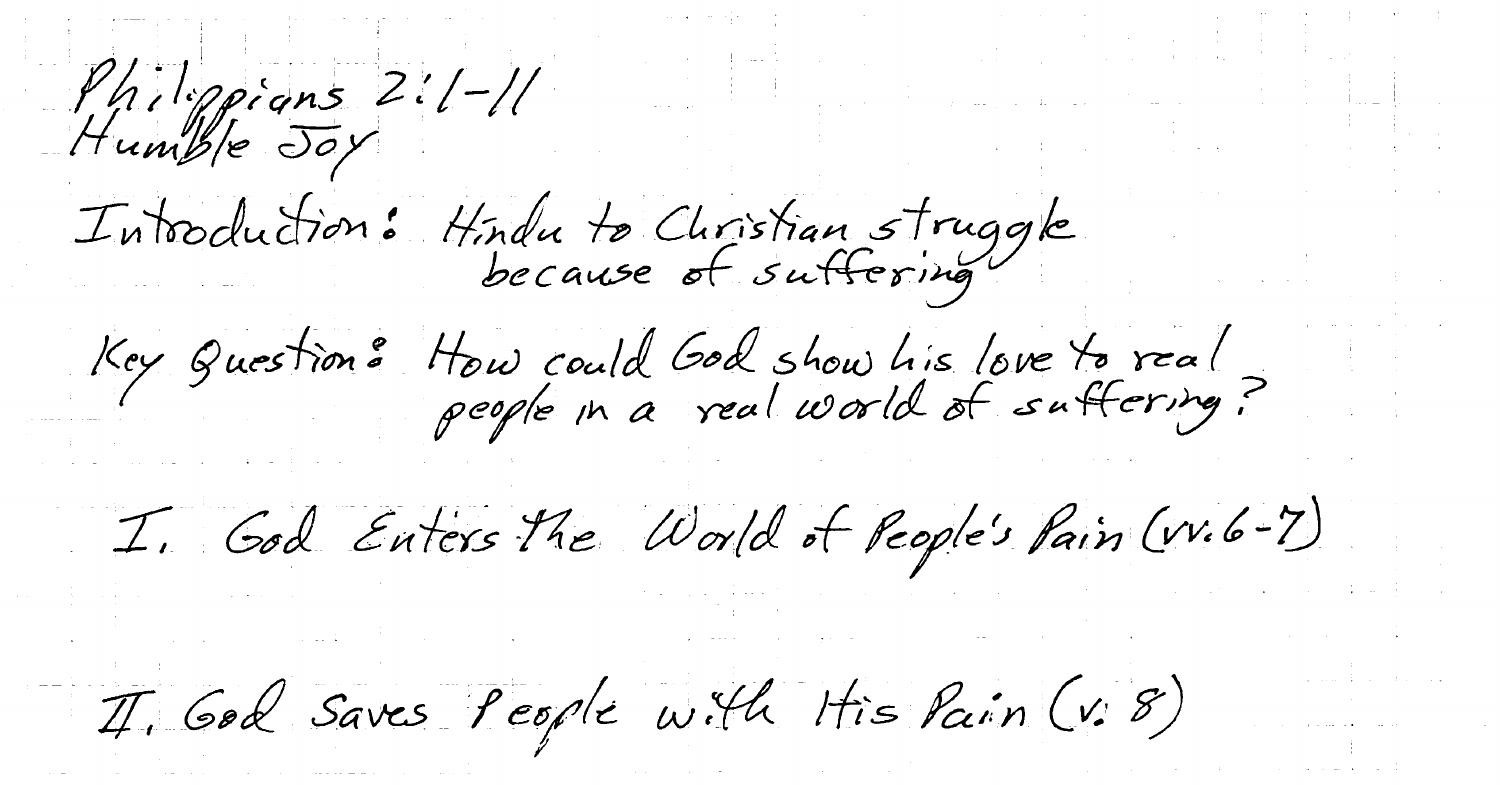 Philippians 2:1-11
Humble Joy
Introduction: Hindu to Christian struggle
because of suffering
Key Question: How could God show his love to real
people in a real world of suffering?
I. God Enters the World of People's Pain (vv. 6-7)
II. God Saves People with His Pain (v. 8)